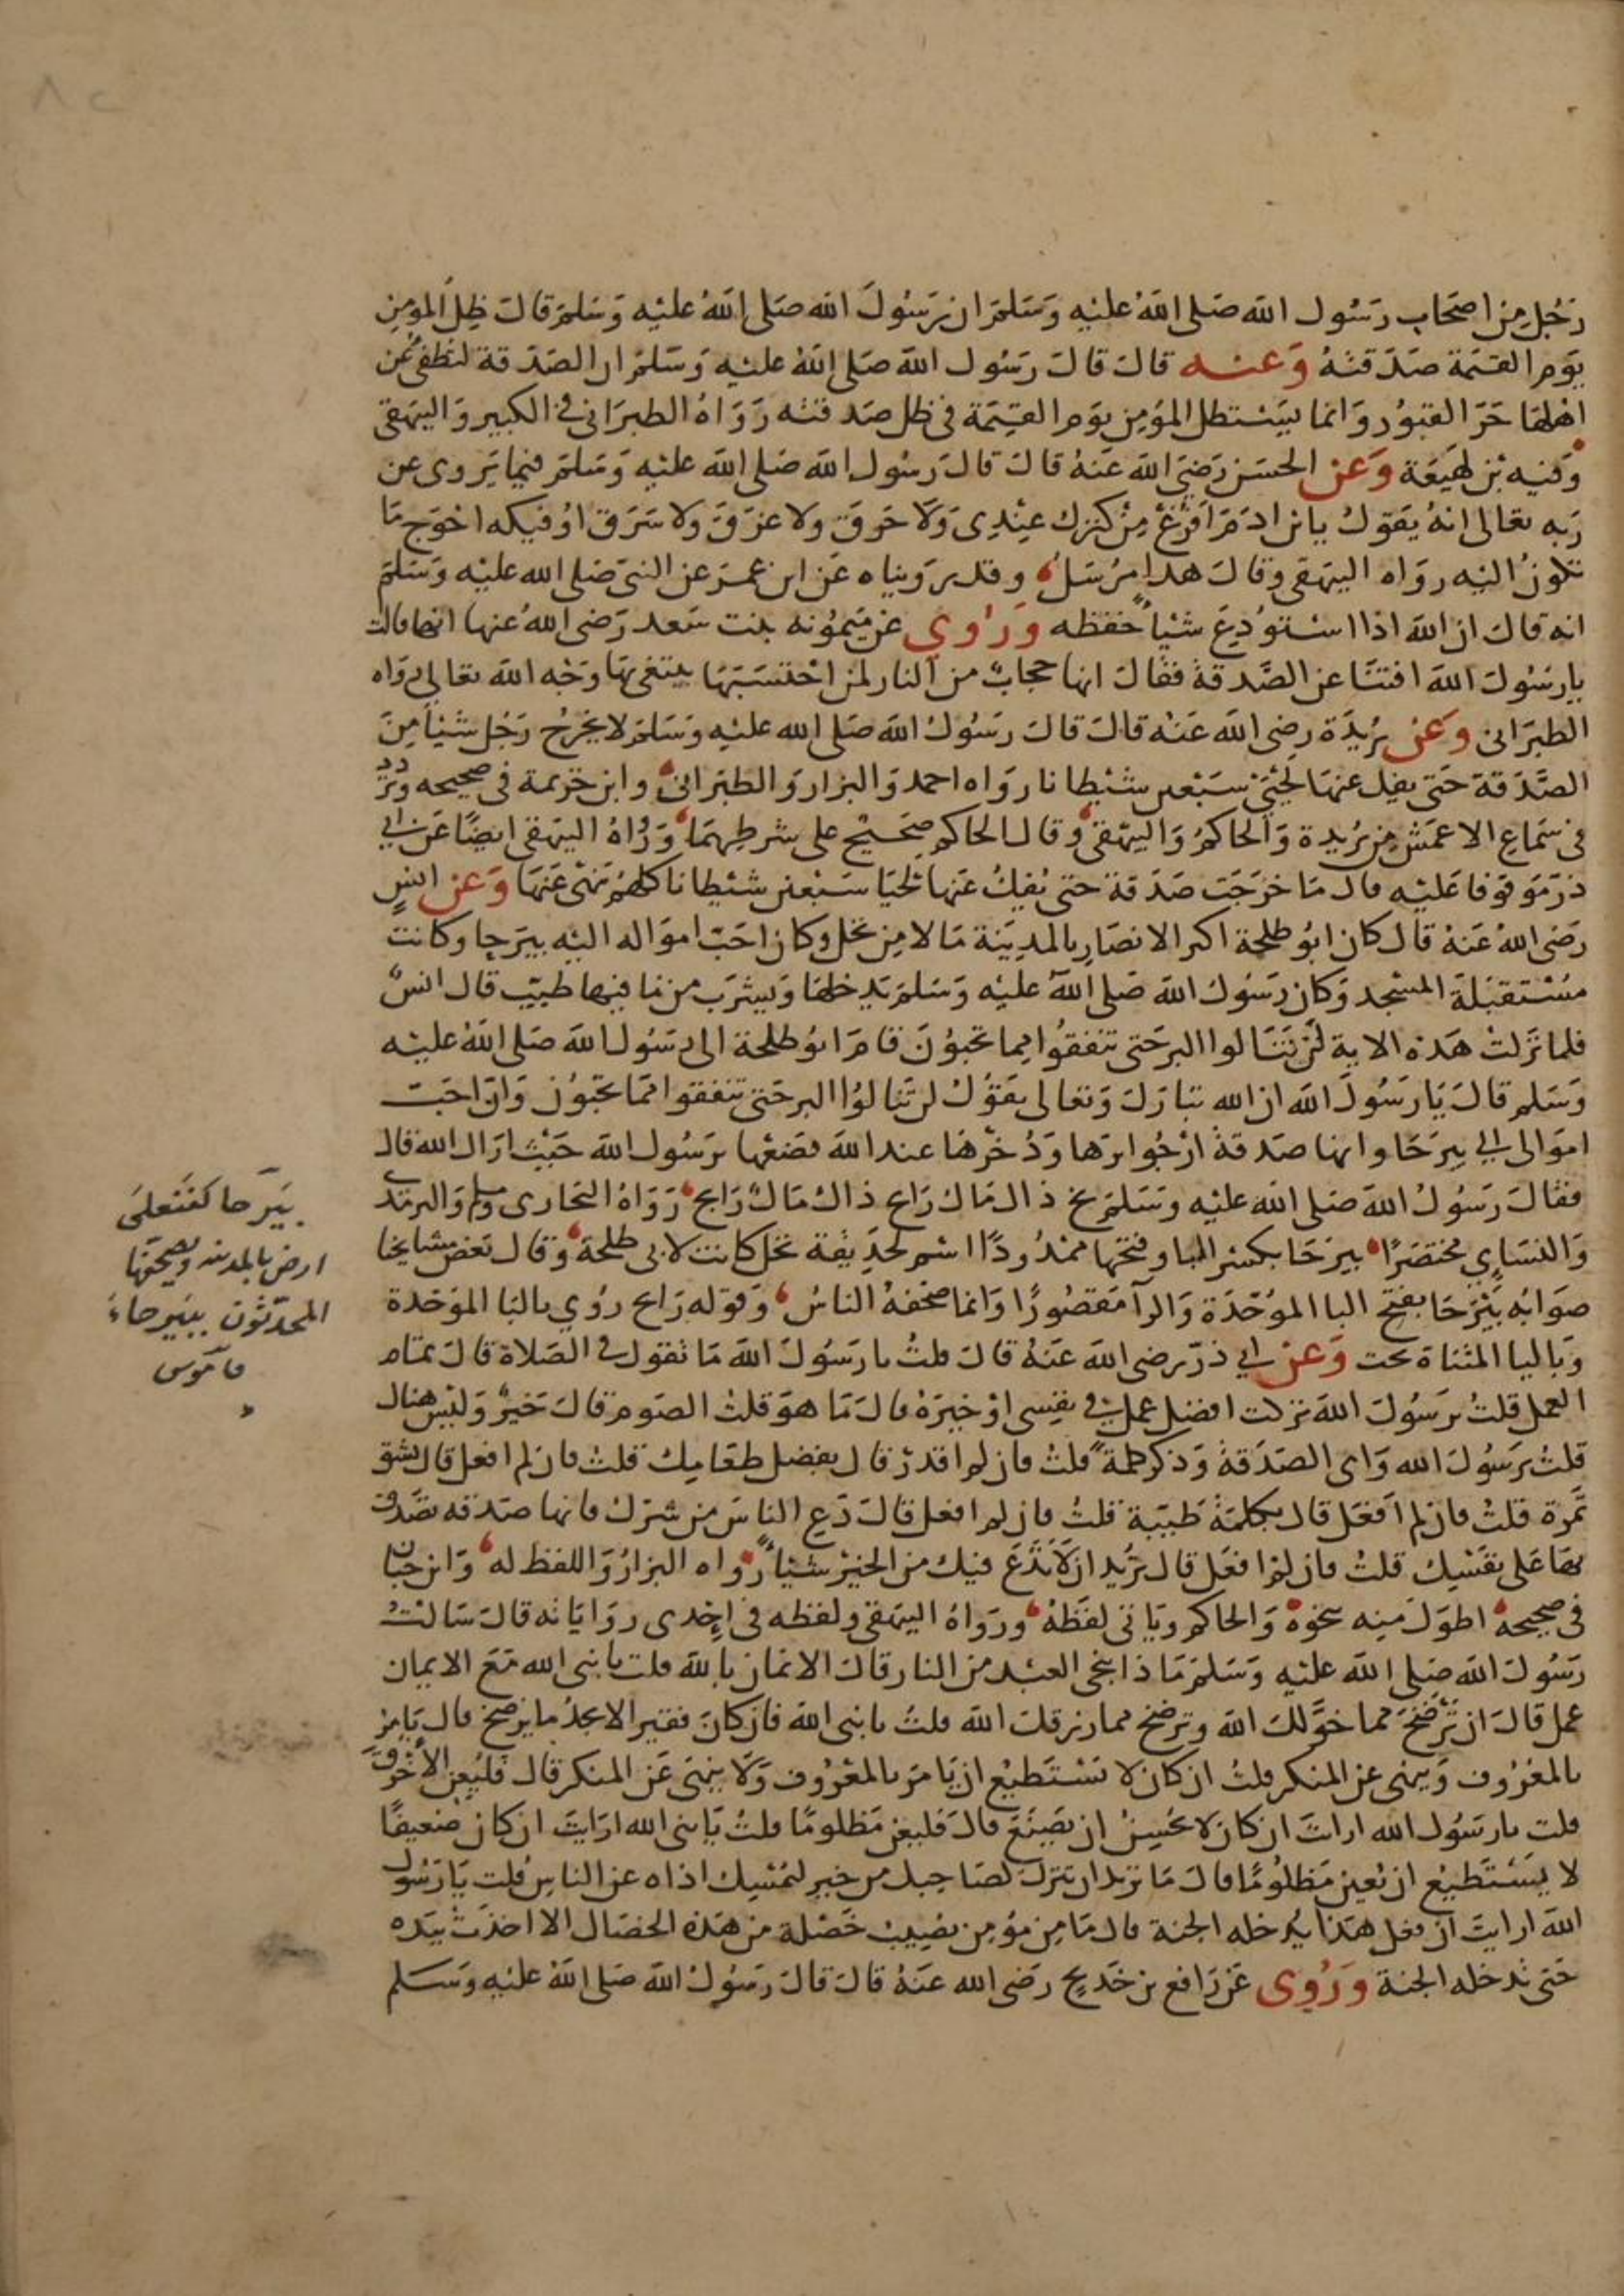 رَجُل مِن اصحَاب رَسُول الله صَلى اللهُ عليْه وَسَلمَ ان رَسُولَ الله صَلى اللهُ عليْه وَسَلمَ قالَ ظِلُ المومِنِ
يَومَ القيمَة صَدَقتهُ وَعنه قالَ قالَ رَسُول اللهِ صَلى اللهُ عليْه وَسَلمَ ان الصَدَقة لتُطفئ عَن
اهْلهَا حَرَ القبُور وَانما يَسْتظل المؤمِن يَومَ القيمَة في ظل صَدقته رَوَاهُ الطبرَاني في الكبير وَالبيهقي
وَفيه بْن لهيعَة وَعَن الحسَن رَضيَ الله عَنهُ قالَ قالَ رسُول الله صَلى الله عليْه وَسَلمَ فيما يَروى عن
رَبه تعالى انهُ يَقولُ يابن ادَمَ افرغْ مِنْ كنزك عِنْدِى وَلَا حَرَقَ ولا غرَقَ ولا سَرَق اوُفيكه احْوَج مَا
تكونُ اليْه رواه البيهقى وقالَ هذا مُرْسَلُ وقد رَويناه عَن ابن عمَرَ عن النبى صَلى الله عليْه وَسَلمَ
انه قالَ ان الله اذا استوُدِعَ شيْأً حَفظه وَرُوِي عن مَيمُونه بنت سَعد رَضى اللهُ عنها انها قالت
يا رسُولَ الله افتنَا عن الصَّدقةَ فقالَ انها حجابٌ من النار لمن احْتسَبَهَا يبتغى بهَا وَجْه الله تعَالى رَوَاه
الطبَرَانى وَعَن بُرَيدَة رضى الله عَنه قالَ قالَ رَسُولُ الله صَلى الله عليْه وَسَلمَ لا يخرِجُ رَجُل شيْأً مِنَ
الصَّدَقة حَتى يفك عنهَا لحْيَىْ سَبْعين شيْطانا رواه احمد وَالبزار وَالطبَرَانى وابن خزيمة فى صحيحه وَترَدد
فى سَمَاعِ الاعمَش مِن بُرَيدة وَالحاكمُ وَالبيْهقى وقال الحاكم صَحيْح على شرطِهمَا وَرُوَاهُ البيهَقى ايضًا عَن ابي
ذرّ مَوقوفا عَليْه قال مَا خرَجَت صَدَقة حتى يُفكُ عَنها لحْيَا سَبْعين شيْطانا كلهُم يَنهَى عَنهَا وَعن انسٍ
رَضى اللهُ عَنهُ قال كان ابُو طلحَة اكثر الانصَارِ بالمدِينَة مَالا مِن نخل وكان احَبّ امْوَاله اليْه بيرَحا وكانت
مُسْتقبَلَة المسْجد وَكان رَسُولُ الله صَلى الله عليْه وَسَلمَ يَدخلهَا وَيشرَب من مَا فيهَا طيّب قال انسٌ
فلما نزلتْ هَذه الاية لنْ تَنَالوا البر حَتى تنفقوُا مما تحبوُنَ قامَ ابوُ طلحَة الى رَسُول اللهَ صَلى اللهُ عليْه
وَسَلم قالَ يَا رَسُولَ الله ان الله تبَارَكَ وَتعَالى يقوُلُ لن تنَالوُا البر حَتى تنفقوا ممَا تحبوُنَ وَان احَبَّ
امْوَالى الى بيرَحَا وانها صَدقة ارْجُوا برها وَذخْرَهَا عندَ اللهَ فضَعْها يرَسُول الله حَيْثُ ارَاك الله قال
فقالَ رَسُولُ الله صَلى الله عليْه وسَلمَ بخ ذاك مَال رَابح ذاك مَالٌ رَابح رَوَاهُ البخارى ومسلم وَالترمذي
وَالنسَاي مختصَرًا بيرَحَا بكسْرِ البا وفتحها ممْدُودًا اسْم لحدِيقة نخل كانت لابى طلحَة وَقال بَعض مشايخنا
صوَابه بَيْرَحَا بفتحِ البا الموُحّدَة وَالرآ مَقصُورًا وَانما صَحّفهُ الناسُ وَقوله رَابح رُوي بالبَا الموَحدة
وَبَاليا المثناة تحت وَعن ابي ذرّ رضى الله عَنهُ قالَ قلتُ يا رَسُولَ الله مَا تقول في الصَلاة قالَ تمَام
العمل قلتُ يرَسُولَ الله تركت افضل عمل في نفِسى اوْ خيَرَهُ قالَ مَا هوَ قلتُ الصَوم قالَ خَيرٌ وَليْسَ هناك
قلتُ يرَسُولَ الله وَاى الصَدَقة وَذكر كلمةً قلتُ فان لم اقدرْ قال بفضل طعَامِك قلتُ فان لم افعل قال بشق
تمَرة قلتُ فان لم اَفعَل قال بكلمَةٍ طَيبَة قلتُ فان لم افعل قالَ دَعِ الناسَ من شرك فانها صَدَقه تصَدق
بهَا عَلى نفسِك قلتُ فان لمْ افعَل قال تُريد ان لَا تدَعَ فيك من الخيْر شيْاً رواه البزارُ وَاللفظ له وَابن حبَان
فى صحيحه اطوَلَ مِنه نحوَه وَالحاكم ويَاتى لفظهُ ورَوَاهُ البيهَقى ولفظه فى اِحْدى رِوَايَاته قالَ سَالتُ
رَسُولَ الله صَلى الله عليْه وَسَلمَ مَاذا ينجى العبْد من النار قالَ الايمان بالله قلت يا نبى الله مَعَ الايمان
عمل قالَ ان تَرْضَخَ مما خوَّلكَ الله وترضخ مما رَزقك الله قلتُ يا نبى الله فان كانَ فقيرا لا يجدُ ما يرضخ قال يَامرُ
بالمعْرُوف وَينهى عن المنكر قلتُ ان كان لا يَسْتَطيْع ان يَامرَ بالمعْرُوف وَلَا ينهَى عَن المنكر قالَ فليُعِن الاخرَق
قلت يا رَسُول الله ارايتَ ان كان لا يحُسِنُ ان يَصْنَعَ قالَ فليعن مَظلومًا قلتُ يَا نبى الله ارَايتَ ان كان ضَعيفًا
لا يَسْتَطيْع ان يُعين مَظلوُمًا قالَ مَا تريد ان تترك لصَاحِبك من خير ليمْسِك اذاه عن الناسِ قلت يَا رَسُولَ
الله ارايتَ ان فعل هَذا يُدخله الجنة قال مَا مِن مؤمِن يصيبُ خَصْلة من هَذه الخصَال الا اخذَتْ بيَده
حَتى تدخله الجنة وَرُوِى عَن رَافع بن خَدِيج رَضى الله عَنهُ قالَ قالَ رَسُولُ الله صَلى اللهُ عليْه وَسَلم
بَيَرحا كفَنَعَلَى
ارض بالمدينه ويصحفها
المحدّثون ببيْرحاء
قاموس